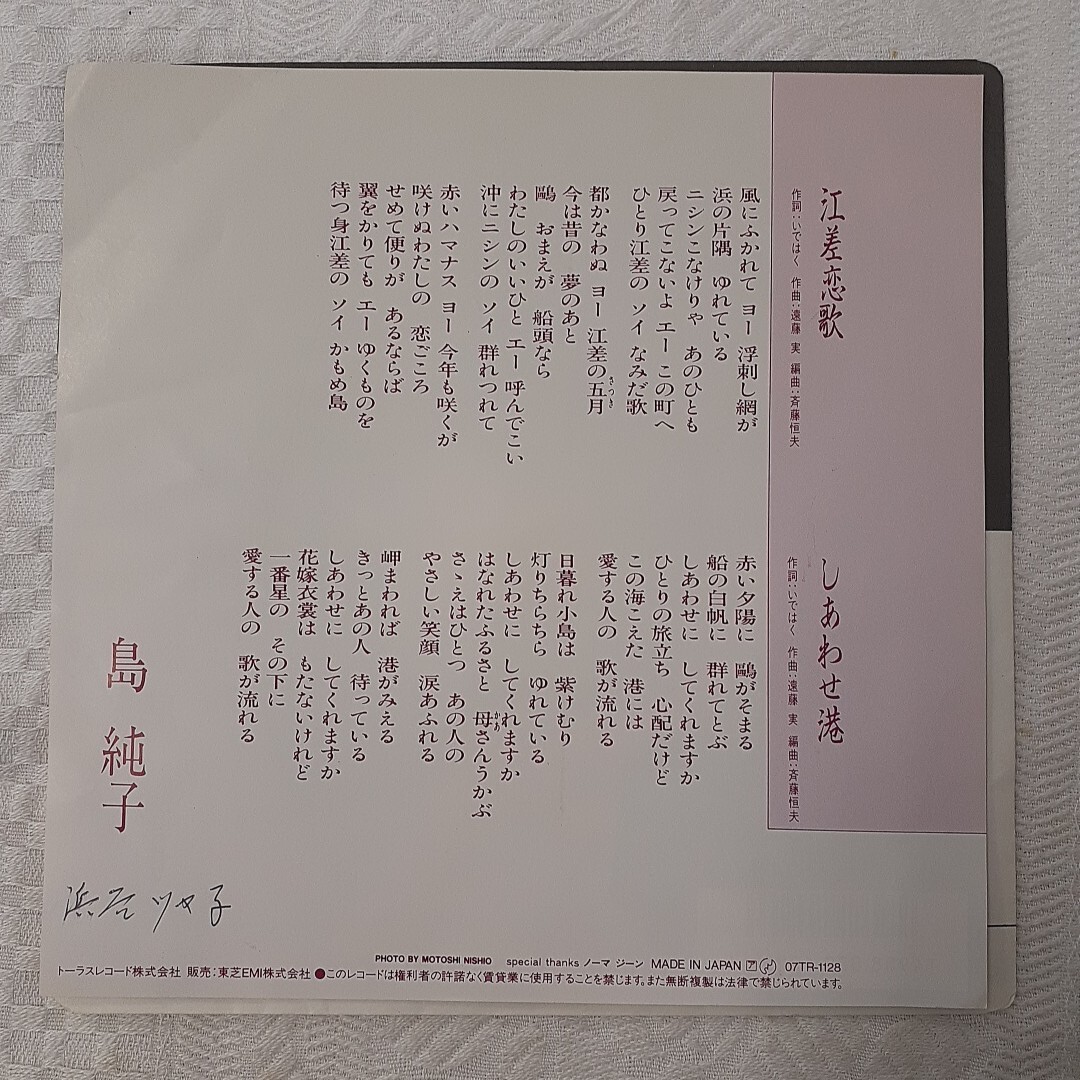 江差恋歌
作詞:いではく 作曲:遠藤 実 編曲:斉藤恒夫
風にふかれて ヨー 浮刺し網が
浜の片隅 ゆれている
ニシンこなけりゃ あのひとも
戻ってこないよ エー この町へ
ひとり江差の ソイ なみだ歌
都かなわぬ ヨー 江差の五月
さつき
今は昔の 夢のあと
鷗 おまえが 船頭なら
わたしのいいひと エー 呼んでこい
沖にニシンの ソイ 群れつれて
赤いハマナス ヨー 今年も咲くが
咲けぬわたしの 恋ごころ
せめて便りが あるならば
翼をかりても エー ゆくものを
待つ身江差の ソイ かもめ島
しあわせ港
作詞:いではく 作曲:遠藤 実 編曲:斉藤恒夫
赤い夕陽に 鷗がそまる
船の白帆に 群れてとぶ
しあわせに してくれますか
ひとりの旅立ち 心配だけど
この海こえた 港には
愛する人の 歌が流れる
日暮れ小島は 紫けむり
灯りちらちら ゆれている
しあわせに してくれますか
はなれたふるさと 母さんうかぶ
かあ
さゝえはひとつ あの人の
やさしい笑顔 涙あふれる
岬まわれば 港がみえる
きっとあの人 待っている
しあわせに してくれますか
花嫁衣裳は もたないけれど
一番星の その下に
愛する人の 歌が流れる
島 純子
PHOTO BY MOTOSHI NISHIO special thanks ノーマ ジーン MADE IN JAPAN 07TR-1128
トーラスレコード株式会社 販売:東芝EMI株式会社 ●このレコードは権利者の許諾なく賃貸業に使用することを禁じます。また無断複製は法律で禁じられています。